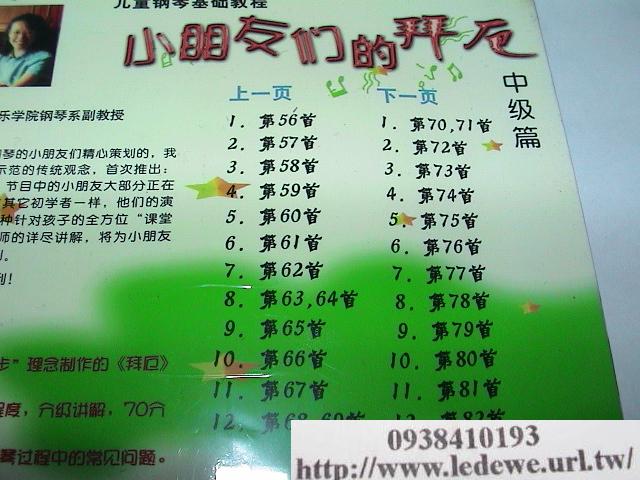 儿童钢琴基础教程
小朋友们的拜厄
中级篇
乐学院钢琴系副教授
琴的小朋友们精心策划的，我
示范的传统观念，首次推出：
节目中的小朋友大部分正在
其它初学者一样，他们的演
种针对孩子的全方位“课堂
师的详尽讲解，将为小朋友
利！
步”理念制作的《拜厄》
程度，分级讲解，70分
琴过程中的常见问题。
上一页
1. 第56首
2. 第57首
3. 第58首
4. 第59首
5. 第60首
6. 第61首
7. 第62首
8. 第63,64首
9. 第65首
10. 第66首
11. 第67首
12. 第68,69首
下一页
1. 第70,71首
2. 第72首
3. 第73首
4. 第74首
5. 第75首
6. 第76首
7. 第77首
8. 第78首
9. 第79首
10. 第80首
11. 第81首
12. 第82首
0938410193
http://www.ledewe.url.tw/